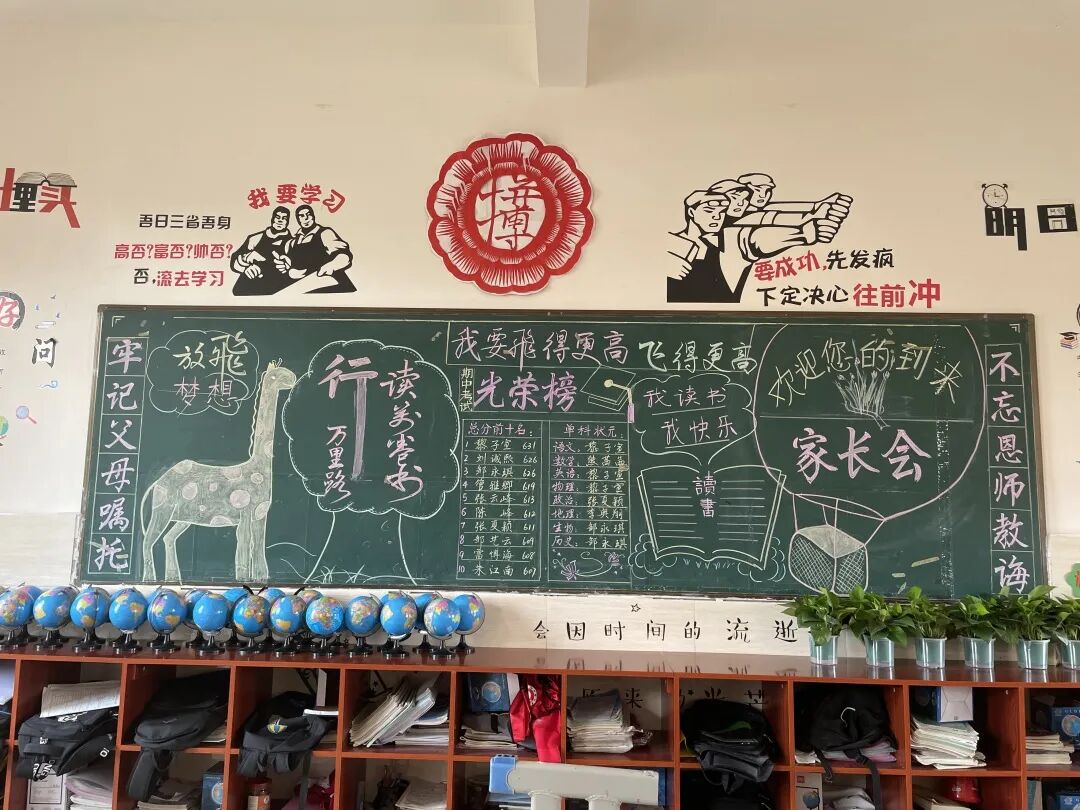 埋头
吾日三省吾身
高否?富否?帅否?
否,滚去学习
我要学习
博
要成功,先发疯
下定决心 往前冲
明日
好
问
牢记父母嘱托
放飞
梦想
行
万里路
读万卷书
我要飛得更高 飞得更高
期中考试
光荣榜
总分前十名:
1 黎子宣 631
2 刘诚熙 626
3 邹永琪 626
4 管雅卿 619
5 张云峰 613
6 陈峰 612
7 张夏颖 611
8 邹艾云 609
9 雷博海 608
10 朱江南 607
单科状元:
语文: 黎子宣
数学:
英语: 黎子宣
物理: 黎子宣
政治: 张夏颖
地理:
生物: 邹永琪
历史: 邹永琪
我读书
我快乐
讀書
欢迎您的到来
家长会
不忘恩师教诲
会因时间的流逝
原来